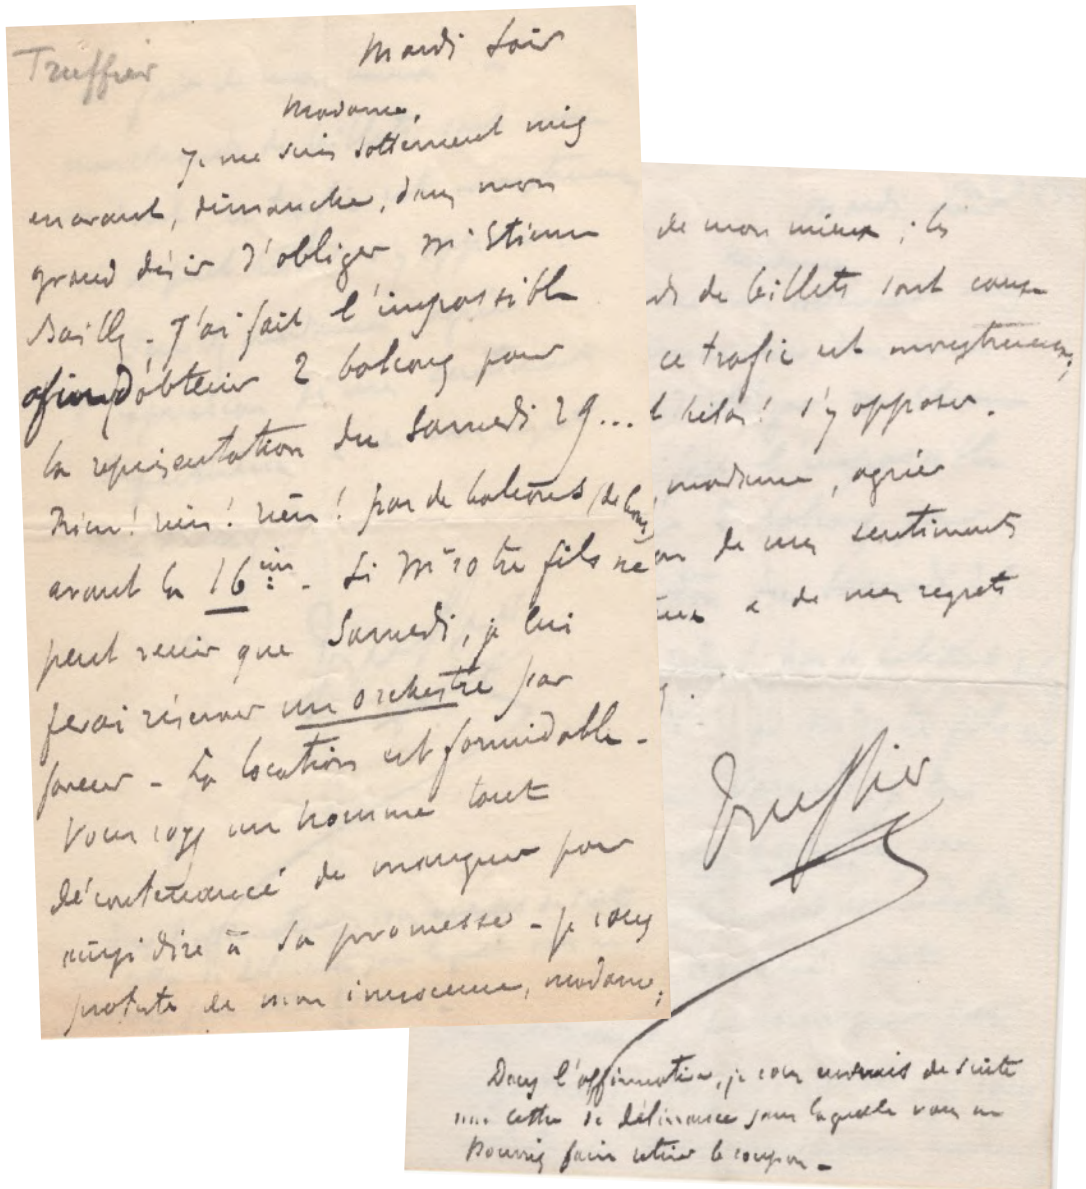 Truffier
Mardi soir
Madame,
Je me suis sottement mis
en avant, dimanche, dans mon
grand désir d'obliger Mr Etienne
Bailly. J'ai fait l'impossible
afin d'obtenir 2 balcons pour
la représentation du Samedi 29...
Rien! rien! rien! pas de balcons (de
avant la 16ème. Si Mr votre fils ne
peut venir que Samedi, je lui
ferai réserver un orchestre par
faveur - La location est formidable -
Vous voyez un homme tout
décontenancé de manquer pour
ainsi dire à sa promesse - je vous
proteste de mon innocence, madame;
de mon mieux ; les
ds de billets sont cause
ce trafic est monstrueux;
hélas! s'y opposer.
, madame, agréer
on de mes sentiments
eux & de mes regrets
Truffier
Dans l'affirmative, je vous enverrais de suite
une lettre de délivrance sans laquelle vous ne
pourriez faire retirer le coupon -